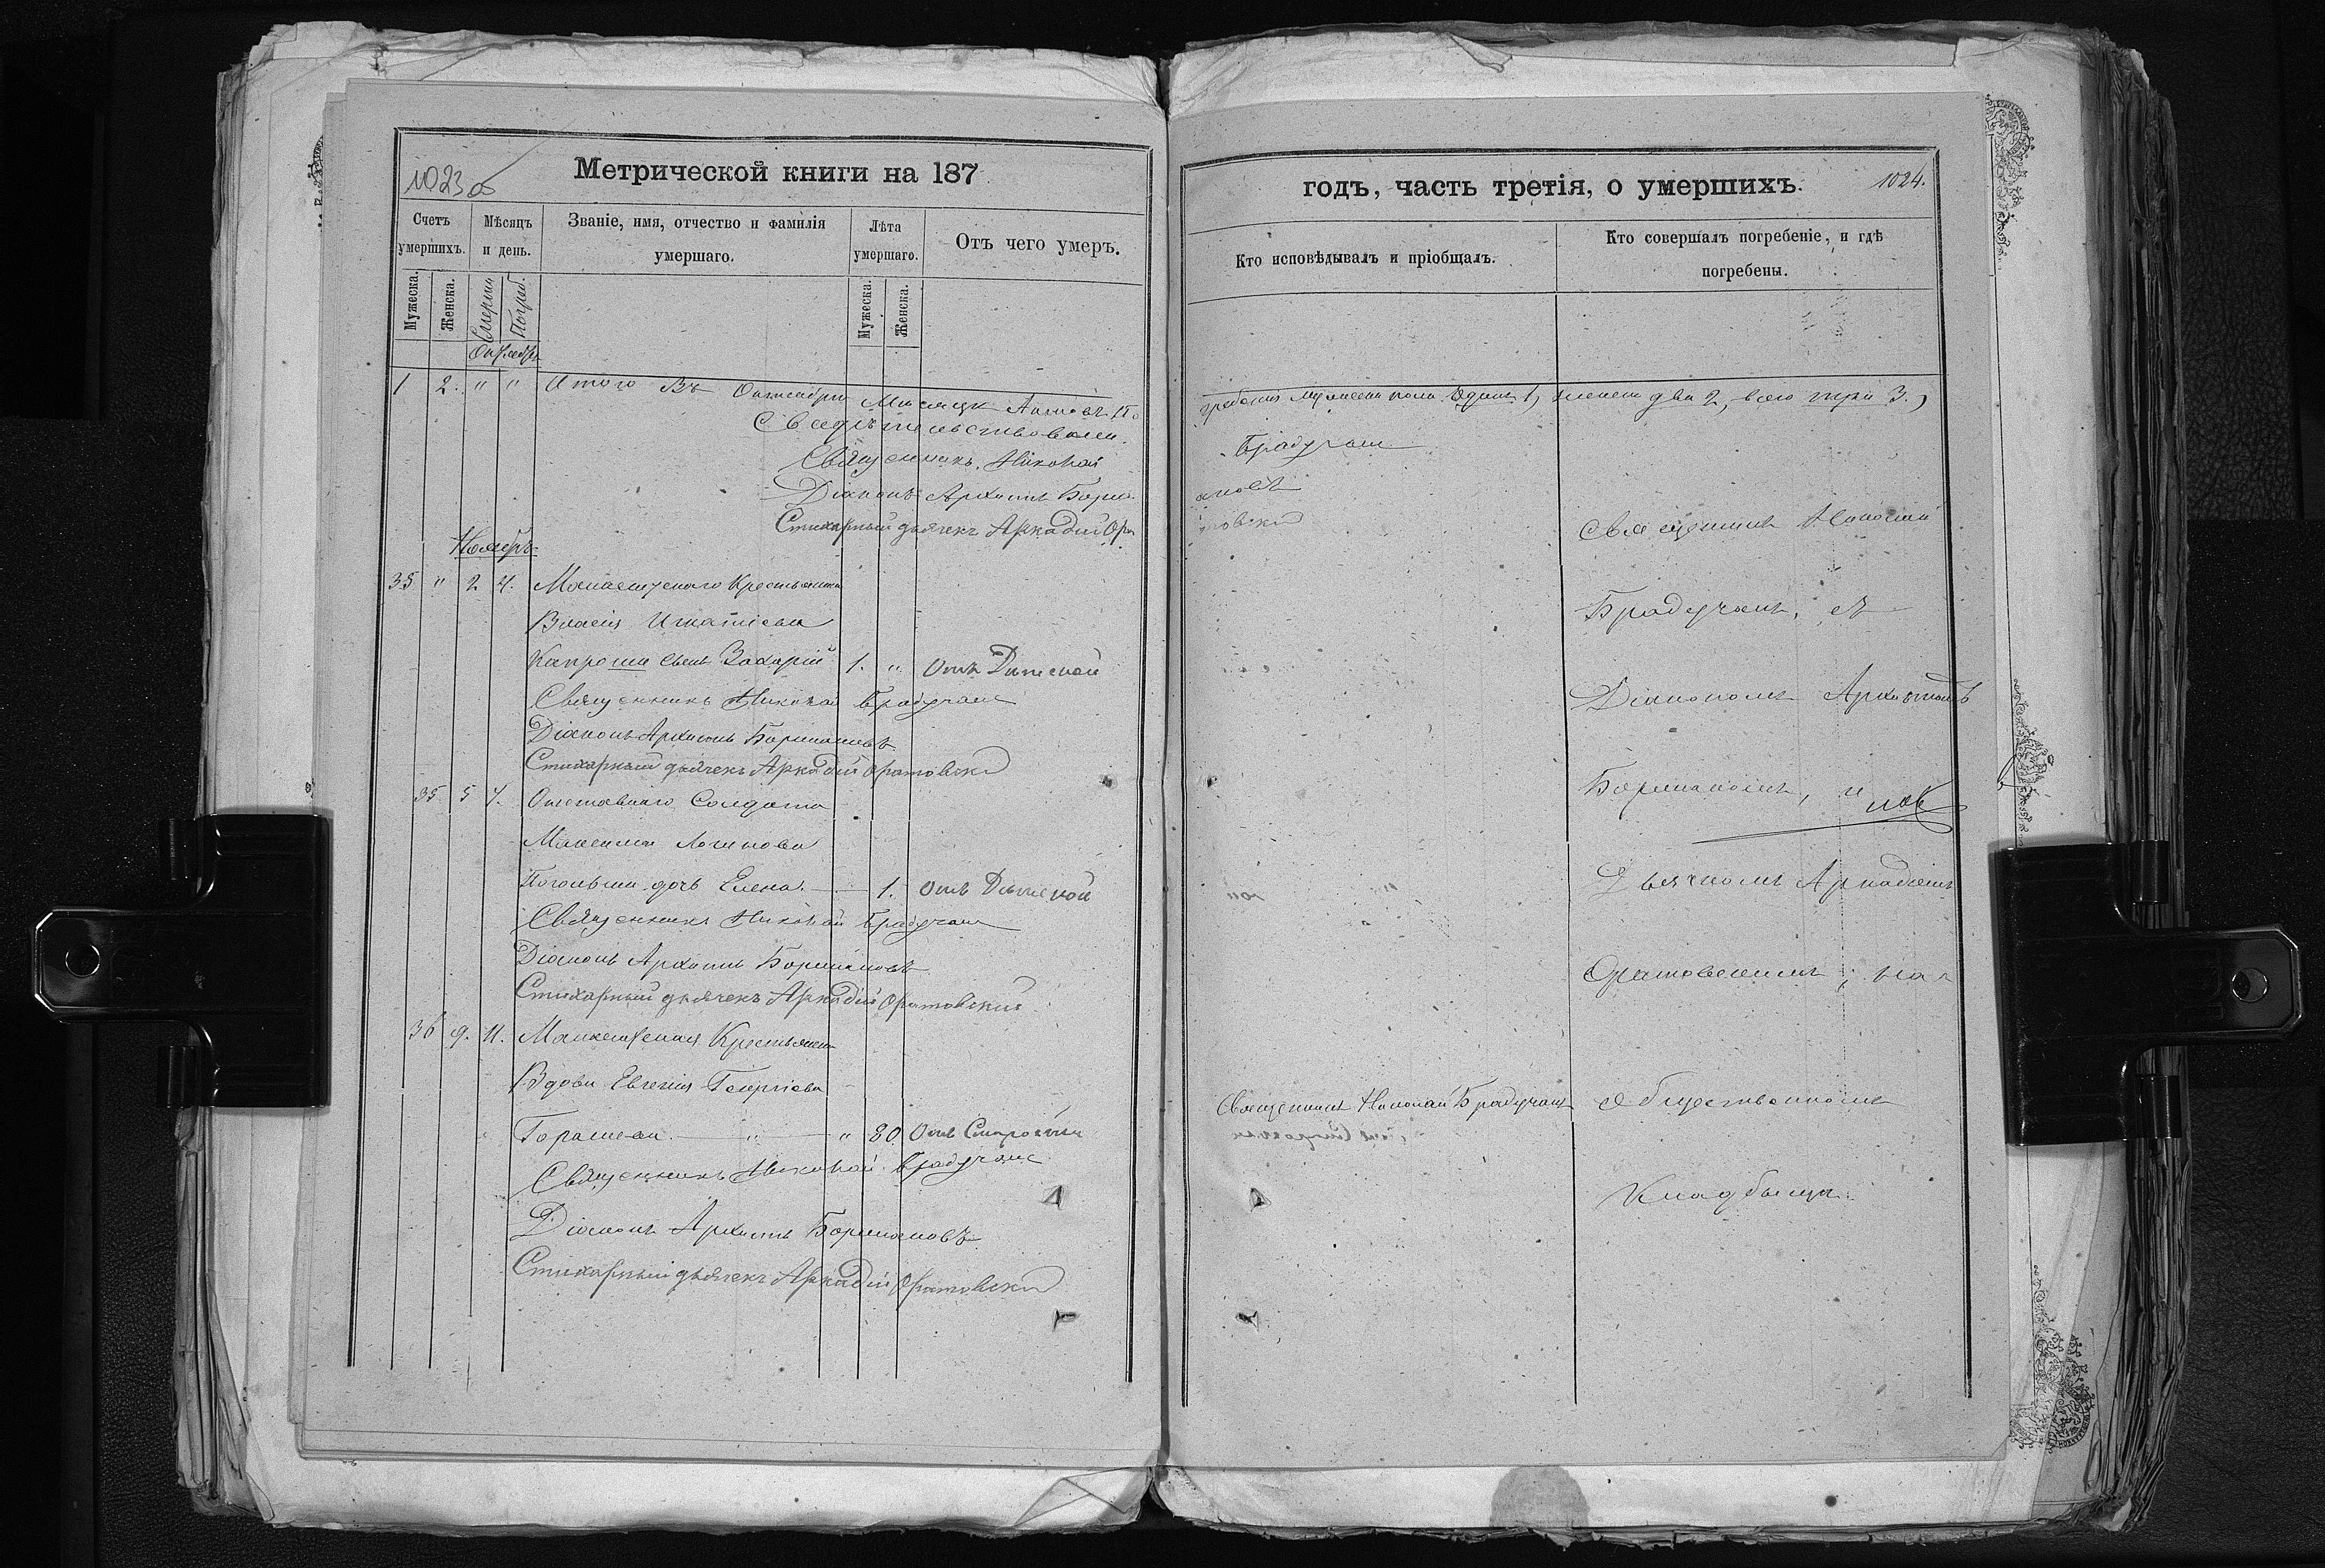 Метрической книги на 187
Счетъ умершихъ.
Мѣсяцъ и день.
Званіе, имя, отчество и фамилія умершаго.
Лѣта умершаго.
Отъ чего умеръ.
Мужеска. Женска. Смерти Погреб. Мужеска. Женска.
Октябрь
1 2. " " Итого Въ Октябри Мѣсяцѣ Актовъ По
Свидѣтельствовали.
Священникъ Николай
Діаконъ Архипъ
Стихарный дьячекъ Аркадій Ора
Ноябрь
35 " 2 4.
Власія Игнатіева
сынъ Захарій 1. " Отъ Дѣтской
Священникъ Николай Брадучанъ
Діаконъ Архипъ
Стихарный дьячекъ Аркадій Оратовскій
35 5 7. Отставнаго Солдата
Максима Логинова
дочь Елена. 1. Отъ Дѣтской
Священникъ Николай Брадучанъ
Діаконъ Архипъ
Стихарный дьячекъ Аркадій Оратовскій
36 9. 11.
Вдова Евгенія Георгіева
" " 80. Отъ Старости
Священникъ Николай Брадучанъ
Діаконъ Архипъ
Стихарный дьячекъ Аркадій Оратовскій
годъ, часть третія, о умершихъ.
1024.
Кто исповѣдывалъ и пріобщалъ.
Кто совершалъ погребеніе, и гдѣ погребены.
гребенія мужеска пола Одинъ 1, женска два 2, всего три 3.,
Брадучанъ
ановъ
товскій
Священникъ Николай
Брадучанъ, съ
Діакономъ Архипомъ
и
Дьячкомъ Аркадіемъ
Оратовскимъ, на
Священникъ Николай Брадучанъ
Общественномъ
Кладбищи.